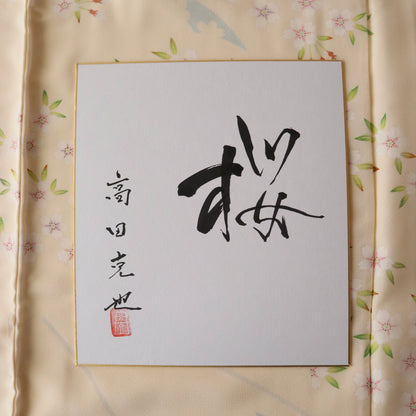 桜
高田克也